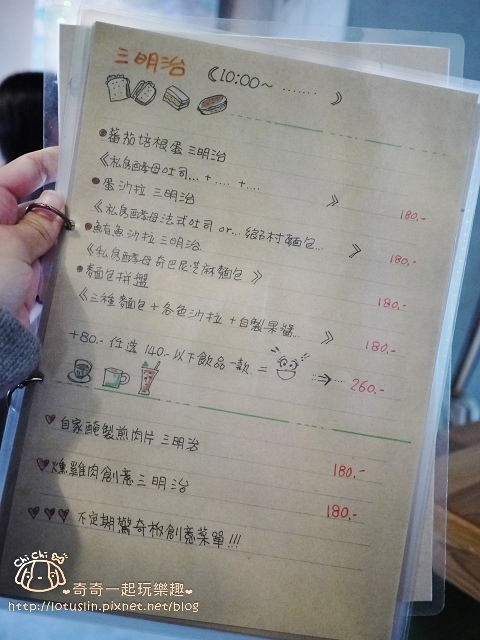 三明治 《10:00~ ....... 》
●蕃茄培根蛋 三明治
《私房酵母吐司... + .... + .... 》 180.-
●蛋沙拉 三明治
《私房酵母法式吐司 or... 鄉村麵包... 》 180.-
●鮪魚沙拉三明治
《私房酵母奇巴尼芝麻麵包 》 180.-
●麵包拼盤
《三種麵包+各色沙拉+自製果醬... 》 180.-
+80.- 任選 140.- 以下飲品一款 = ...→ .... 260.-
♥自家醃製煎肉片 三明治 180.-
♥燻雞肉創意三明治 180.-
♥♥♥ 不定期驚奇椒創意菜單!!!
Chi Chi
♥奇奇一起玩樂趣♥
http://lotuslin.pixnet.net/blog